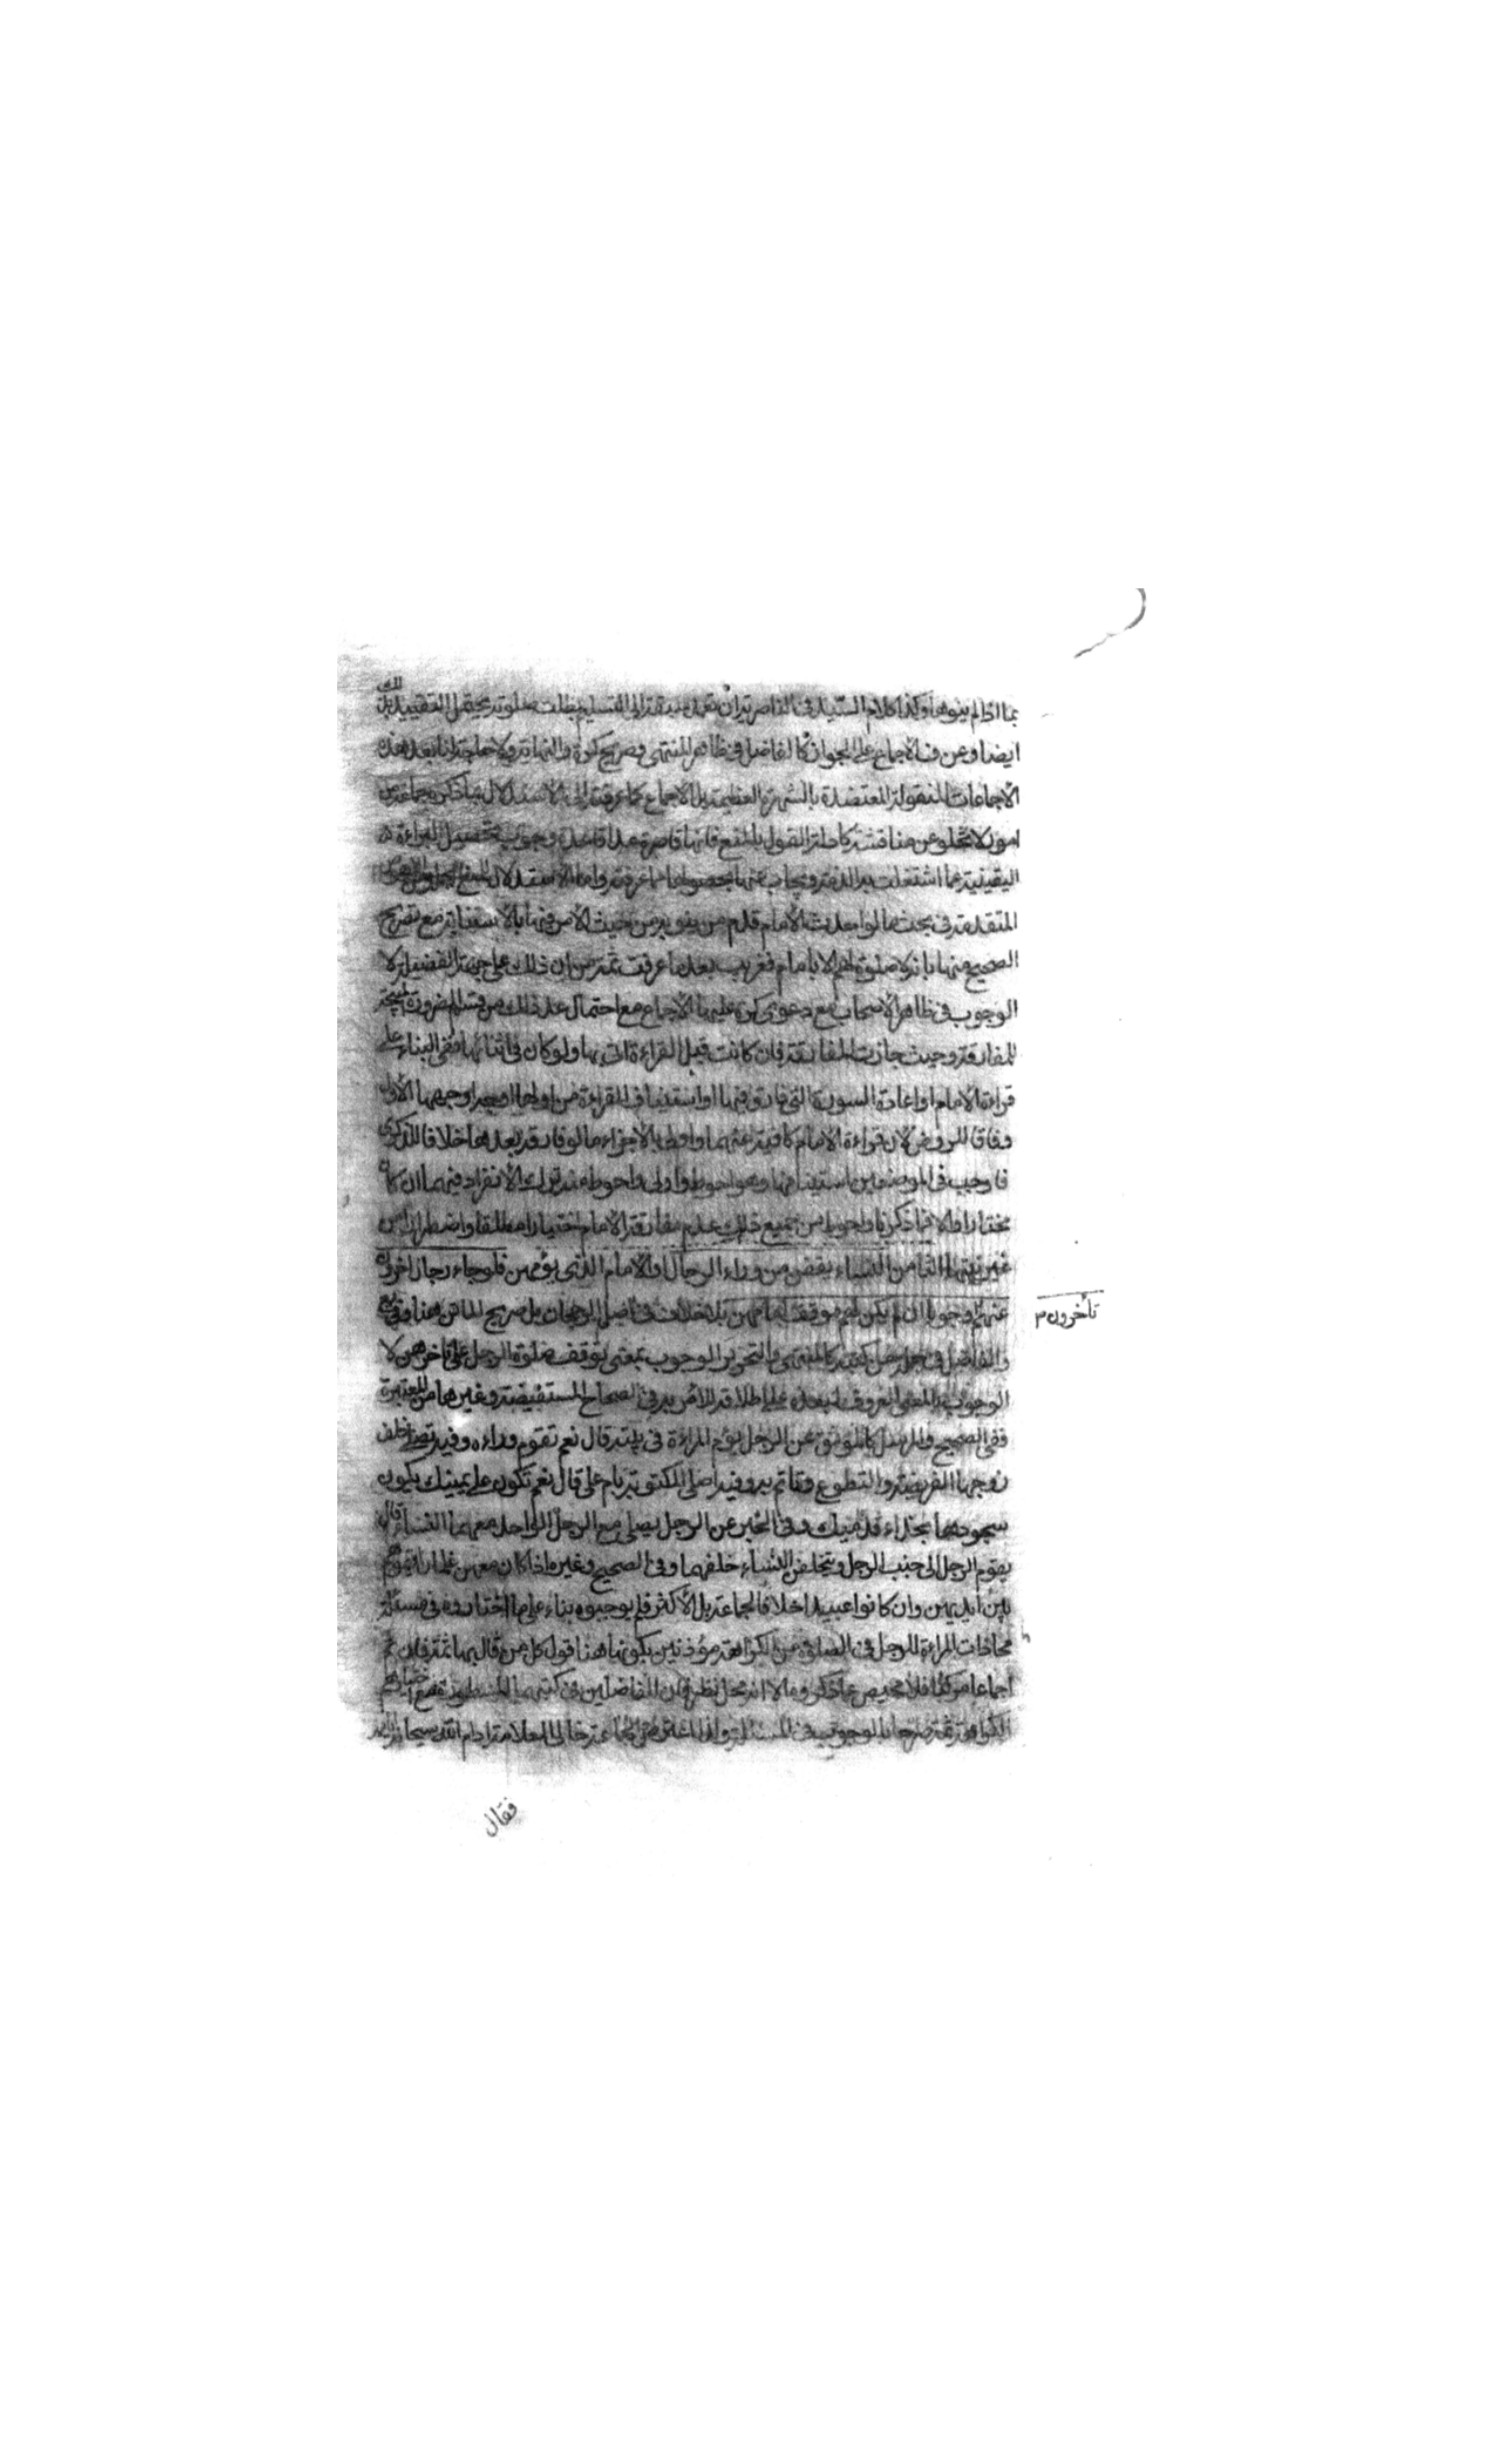 بما اذا لم ينوها وكذا كلام السيد في الناصرية ان تعمد سبقه الى التسليم بطلت صلوته يحتمل التقييد بذلك
ايضا وعن الاجماع على الجواز كالفاضل في ظاهر المنتهى وصريح كرة والنهاية ولا حاجة لنا بعد هذه
الاجماعات المنقولة المعتضدة بالشهرة العظيمة بل الاجماع كما عرفته الى الاستدلال بما ذكره جماعة من
امور لا تخلو عن مناقشة كادلة القول بالمنع فانها قاصرة عدا قاعدة وجوب تحصيل البراءة
اليقينية عما اشتغلت به الذمة ويجاب عنها بحصولها بما عرفته واما الاستدلال
المتقدمة في بحث ما لو احدث الامام قدم من ينوبه من حيث الامر فيها بالاستنابة مع تصريح
الصحيح منها بانه لا صلوة لهم الا بامام فغريب بعد ما عرفت ثمة من ان ذلك على جهة الفضيلة لا
الوجوب في ظاهر الاصحاب مع دعوى كرة عليها الاجماع مع احتمال عد ذلك من قسم الضرورة المبيحة
للمفارقة وحيث جازت المفارقة فان كانت قبل القراءة اتى بها ولو كان في اثنائها ففي البناء على
قراءة الامام او اعادة السورة التي فارق فيها او استيناف القراءة من اولها اوجه اوجهها الاول
وفاقا للروض لان قراءة الامام كافية عنهما واولى بالاجزاء ما لو فارقه بعدها خلافا للذكرى
فاوجب في الموضعين استينافها وهو احوط واولى واحوط منه ترك الانفراد فيهما ان كان
مختارا والا فما ذكرنا واحوط من جميع ذلك عدم مفارقة الامام اختيارا مطلقا واضطرارا من
غير نيتها الثامن النساء يقفن من وراء الرجال والامام الذي يؤمهن فلو جاء رجال اخرون
تأخرون
عنهم وجوبا ان لم يكن لهم موقف امامهن بلا خلاف في اصل الرجحان بل صريح الماتن هنا وفي يع
والفاضل في جملة من كتبه كالمنتهى والتحرير الوجوب بمعنى توقف صلوة الرجل على تاخرهن لا
الوجوب بالمعنى المعروف لبعده على اطلاقه للامر به في الصحاح المستفيضة وغيرها من المعتبرة
ففي الصحيح والمرسل كالموثق عن الرجل يؤم المراءة في بيته قال نعم تقوم وراءه وفيه تصلي خلف
زوجها الفريضة والتطوع وتاتم به وفيه اصلي المكتوبة بام علي قال نعم تكون على يمينك يكون
سجودها بحذاء قدميك وفي الخبر عن الرجل يصلي مع الرجل الواحد معهما النساء قال
يقوم الرجل الى جنب الرجل ويتخلفن النساء خلفهما وفي الصحيح وغيره اذا كان معهن غلمان اقيموهم
بين ايديهن وان كانوا عبيدا خلافا لجماعة بل الاكثر فلم يوجبوه بناء على ما اختاروه في مسئلة
محاذات المراءة للرجل في الصلوة من الكراهة مؤذنين بكونها هنا قول كل من قال بها ثمة فان تم
اجماعا مركبا فلا محيص عما ذكروه والا انه محل نظر فان الفاضلين في كتبهما المسطورة مع اختيارهم
الكراهة ثمة صرحا بالوجوب في المسئلة ولذا خالي العلامة ادام الله سبحانه
فقال